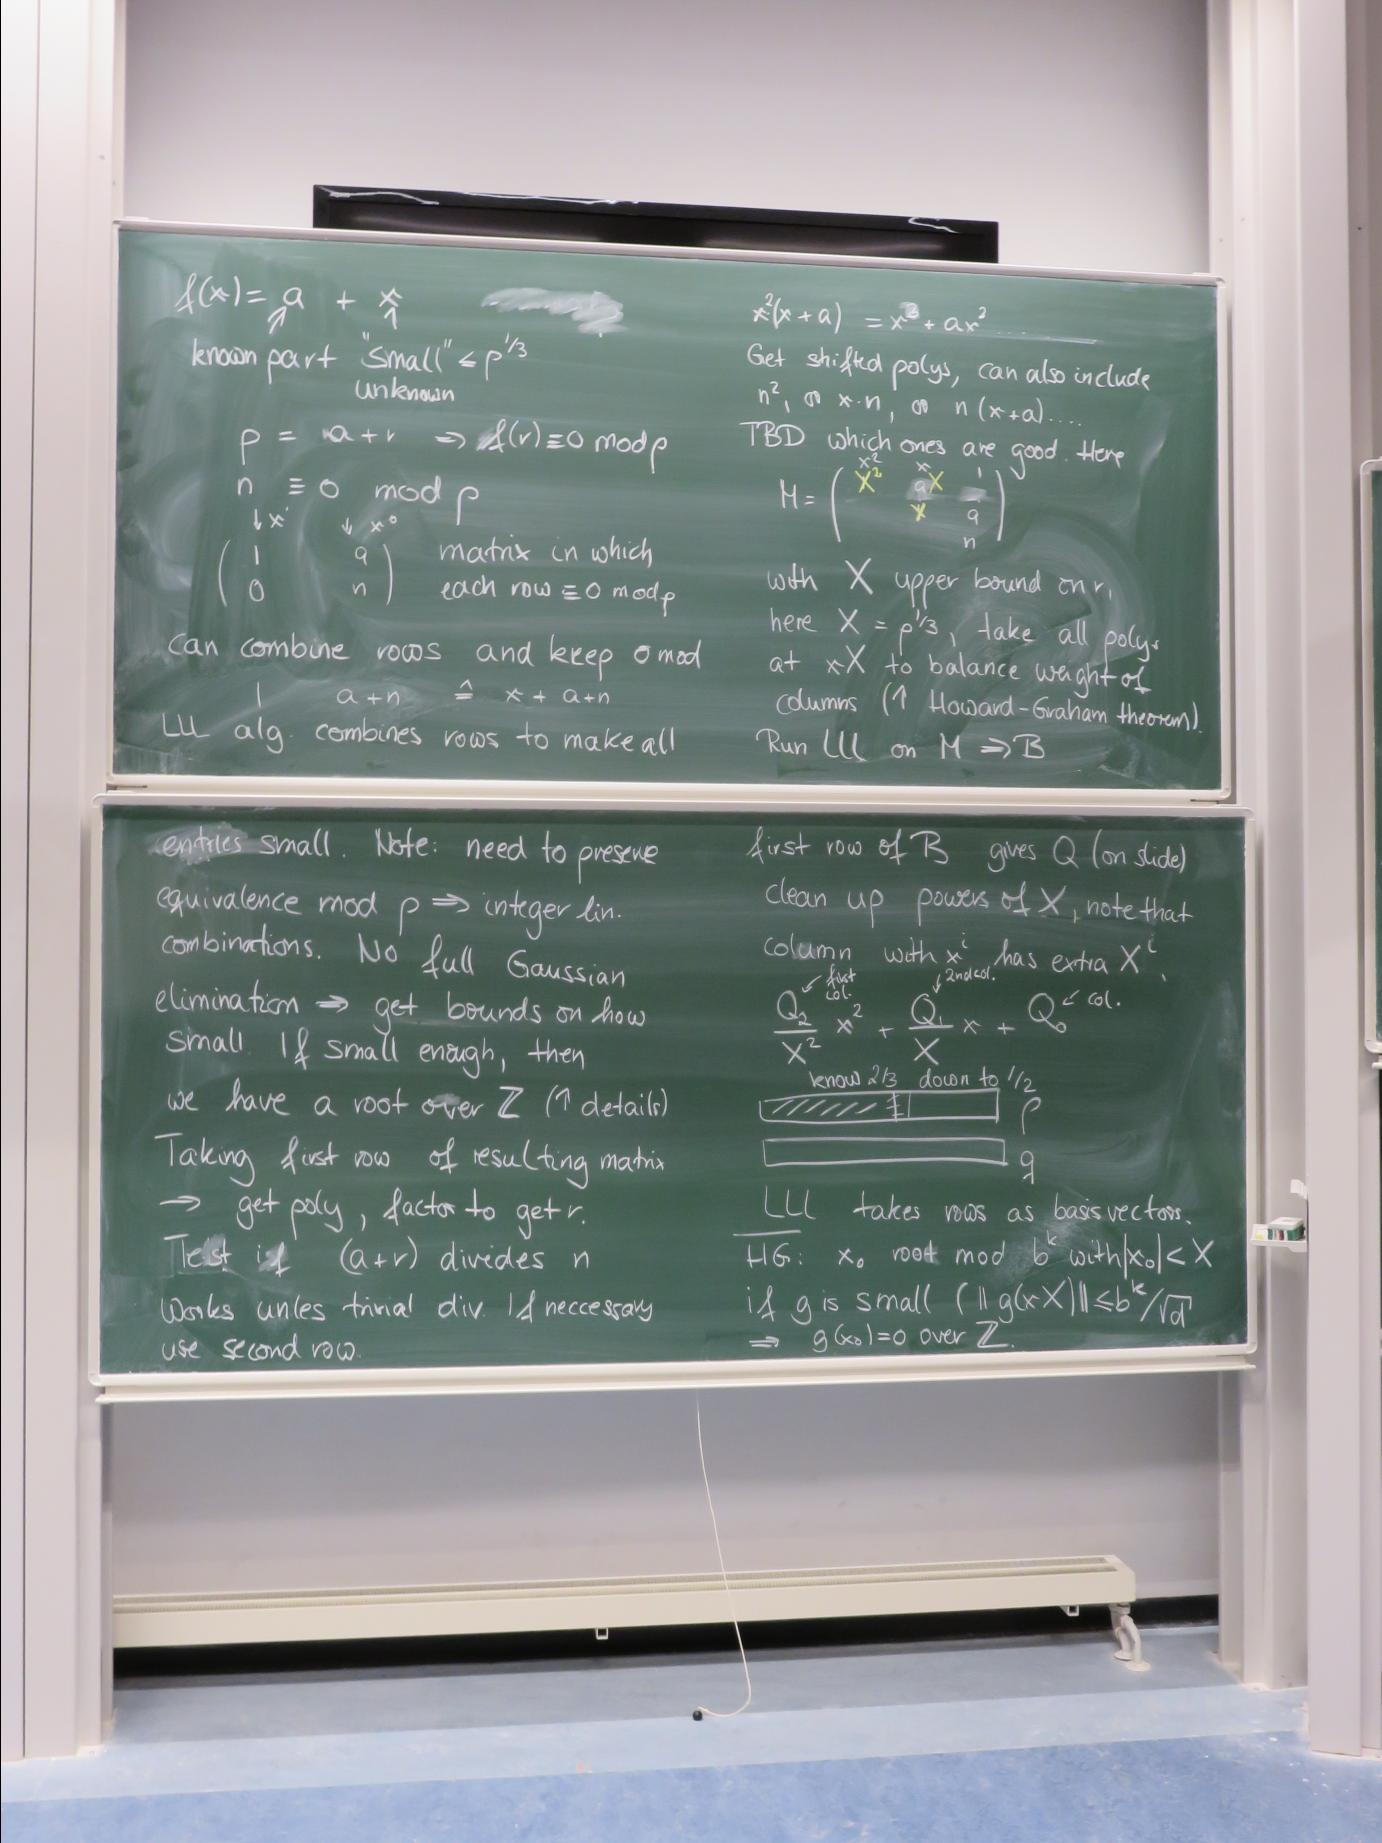 f(x) = a + x
known part "small" ≤ p^1/3
unknown
p = a+r ⇒ f(r) ≡ 0 mod p
n ≡ 0 mod p
↓x' ↓x⁰
( 1 a ) matrix in which
( 0 n ) each row ≡ 0 mod p
can combine rows and keep 0 mod
1 a+n ≙ x + a+n
LLL alg. combines rows to make all
entries small. Note: need to preserve
equivalence mod p ⇒ integer lin.
combinations. No full Gaussian
elimination ⇒ get bounds on how
small. If small enough, then
we have a root over ℤ (↑ details)
Taking first row of resulting matrix
→ get poly, factor to get r.
Test if (a+r) divides n
Works unles trivial div. If neccessary
use second row.
x²(x+a) = x³ + ax²
Get shifted polys, can also include
n², or x·n, or n(x+a)....
TBD which ones are good. Here
x² x 1
M = ( X² aX
X a
n )
with X upper bound on r,
here X = p^1/3, take all polys
at xX to balance weight of
columns (↑ Howard-Graham theorem).
Run LLL on M ⇒ B
first row of B gives Q (on slide)
clean up powers of X, note that
column with xⁱ has extra Xⁱ.
↙ first col. ↓ 2nd col.
Q₂/X² x² + Q₁/X x + Q₀ ↙ col.
know 2/3 down to 1/2
p
q
LLL takes rows as basis vectors.
HG: x₀ root mod b^k with |x₀| < X
if g is small (‖g(xX)‖ ≤ b^k/√d
⇒ g(x₀)=0 over ℤ.